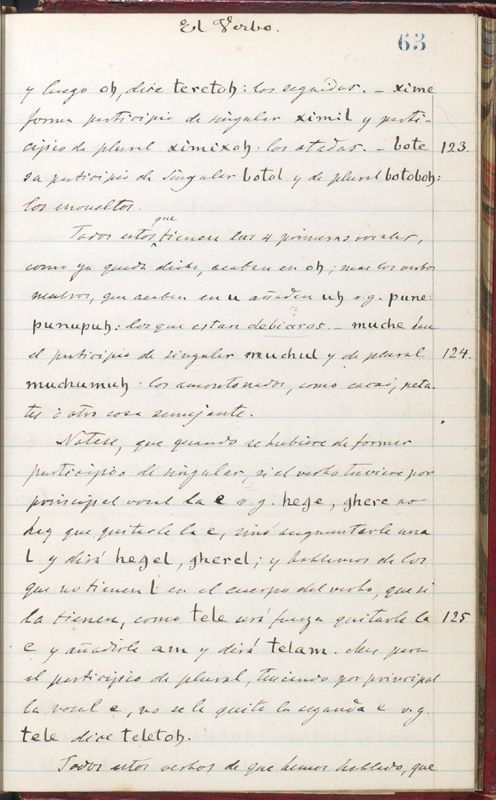 El Verbo.
63
y luego oh, dice teretoh: los seguidos. – xime
forma participio de singular ximil y parti-
cipio de plural ximixoh: los atados. – bote 123.
su participio de singular botol y de plural botoboh:
los envueltos.
Todos estos, que tienen las 4 primeras vocales,
como ya queda dicho, acaban en oh; mas los verbos
neutros, que acaban en u añaden uh v.g. pune:
punupuh: los que estan debiaros. – muche hace
el participio de singular muchul y de plural 124.
muchumuh: los amontonados, como cacao, peta-
tes ò otra cosa semejante.
Notese, que quando se hubiere de formar
participio de singular, si el verbo tuviere por
principal vocal la e v.g. heze, ghere no
hay que quitarle la e, sinó augmentarle una
l y dirá hezel, gherel; y hablemos de los
que no tienen l en el cuerpo del verbo, que si
la tienen, como tele será fuerza quitarle la 125
e y añadirle am y dirá telam. Mas para
el participio de plural, teniendo por principal
la vocal e, no se le quita la segunda e v.g.
tele dice teletoh.
Todos estos verbos de que hemos hablado, que